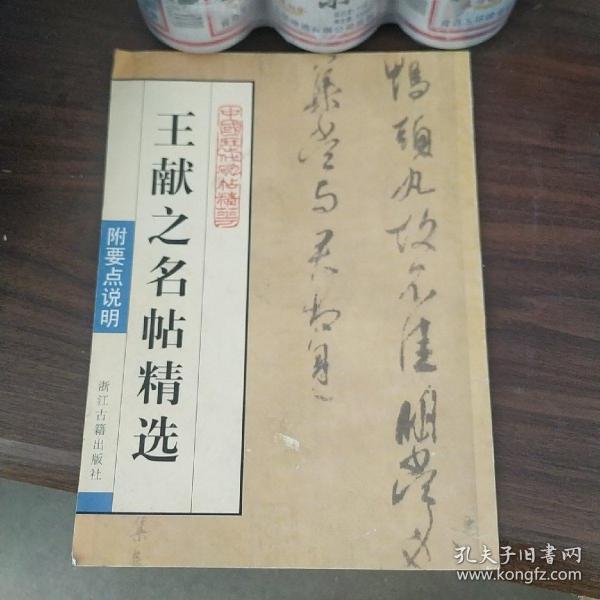 王献之名帖精选
附要点说明
浙江古籍出版社
中國歷代名帖精華
鴨頭丸故不佳明當必
集當与君相見
集
孔夫子旧书网
www.kongfz.com